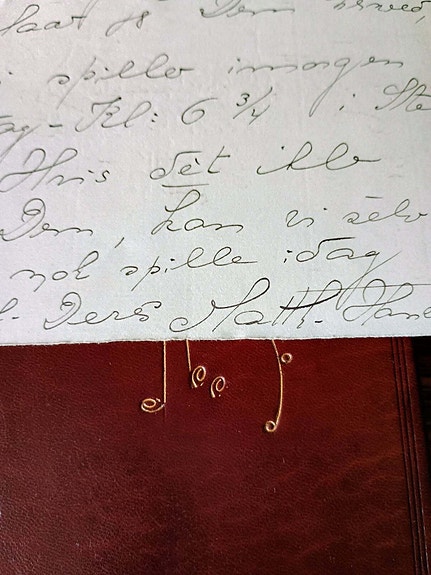 faaet jeg Dem
i spille imorgen
ag - Kl: 6 3/4 i Ste
Hvis dèt ikke
Dem, kan vi selv
nok spille idag
Deres Matth. Hans